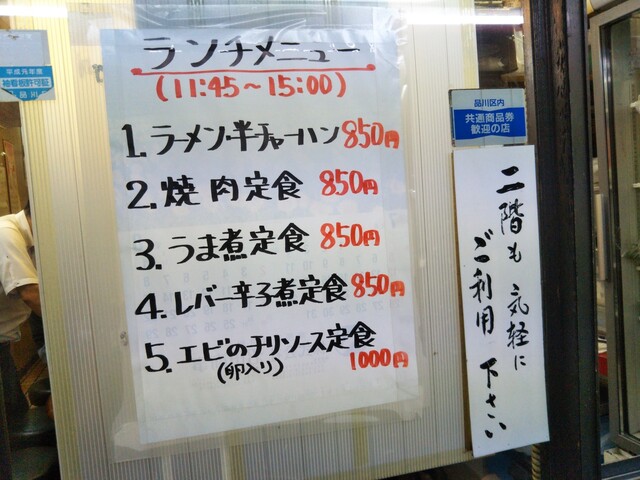 ランチメニュー
(11:45～15:00)
1.ラーメン・半チャーハン 850円
2.焼肉定食 850円
3.うま煮定食 850円
4.レバー辛子煮定食 850円
5.エビのチリソース定食
(卵入り) 1000円
品川区内
共通商品券
歓迎の店
二階も気軽に
ご利用下さい